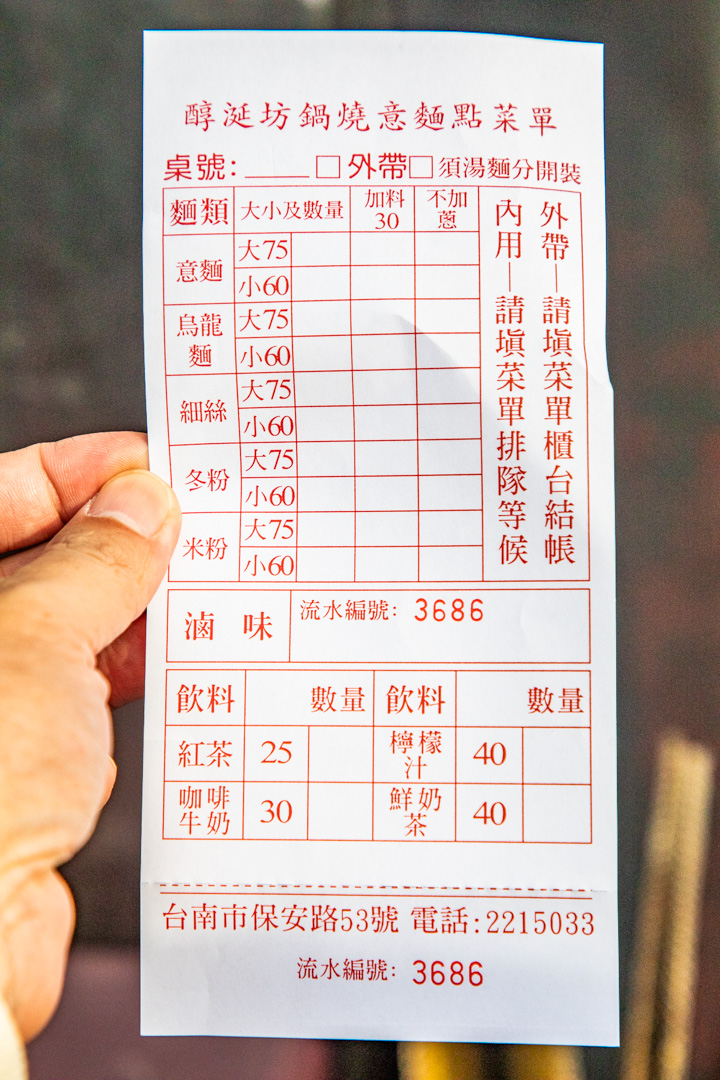 醇涎坊鍋燒意麵點菜單
桌號：____ □ 外帶□ 須湯麵分開裝
麵類 大小及數量 加料30 不加蔥
意麵 大75
小60
烏龍麵 大75
小60
細絲 大75
小60
冬粉 大75
小60
米粉 大75
小60
外帶—請填菜單櫃台結帳
內用—請填菜單排隊等候
滷味 流水編號：3686
飲料 數量 飲料 數量
紅茶 25 檸檬汁 40
咖啡牛奶 30 鮮奶茶 40
台南市保安路53號 電話:2215033
流水編號：3686